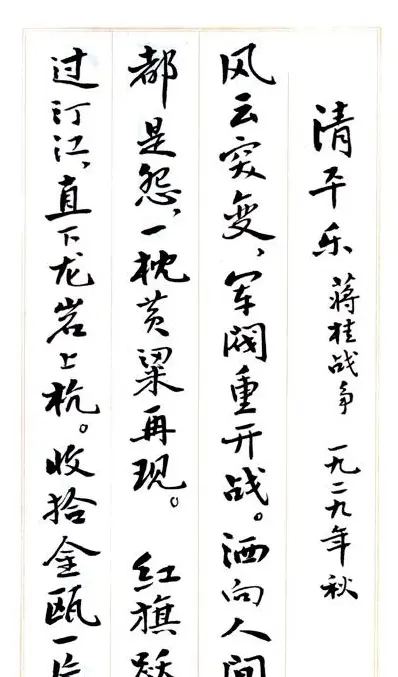 清平乐 蒋桂战争 一九二九年秋
风云突变，军阀重开战。洒向人间
都是怨，一枕黄粱再现。 红旗跃
过汀江，直下龙岩上杭。收拾金瓯一片